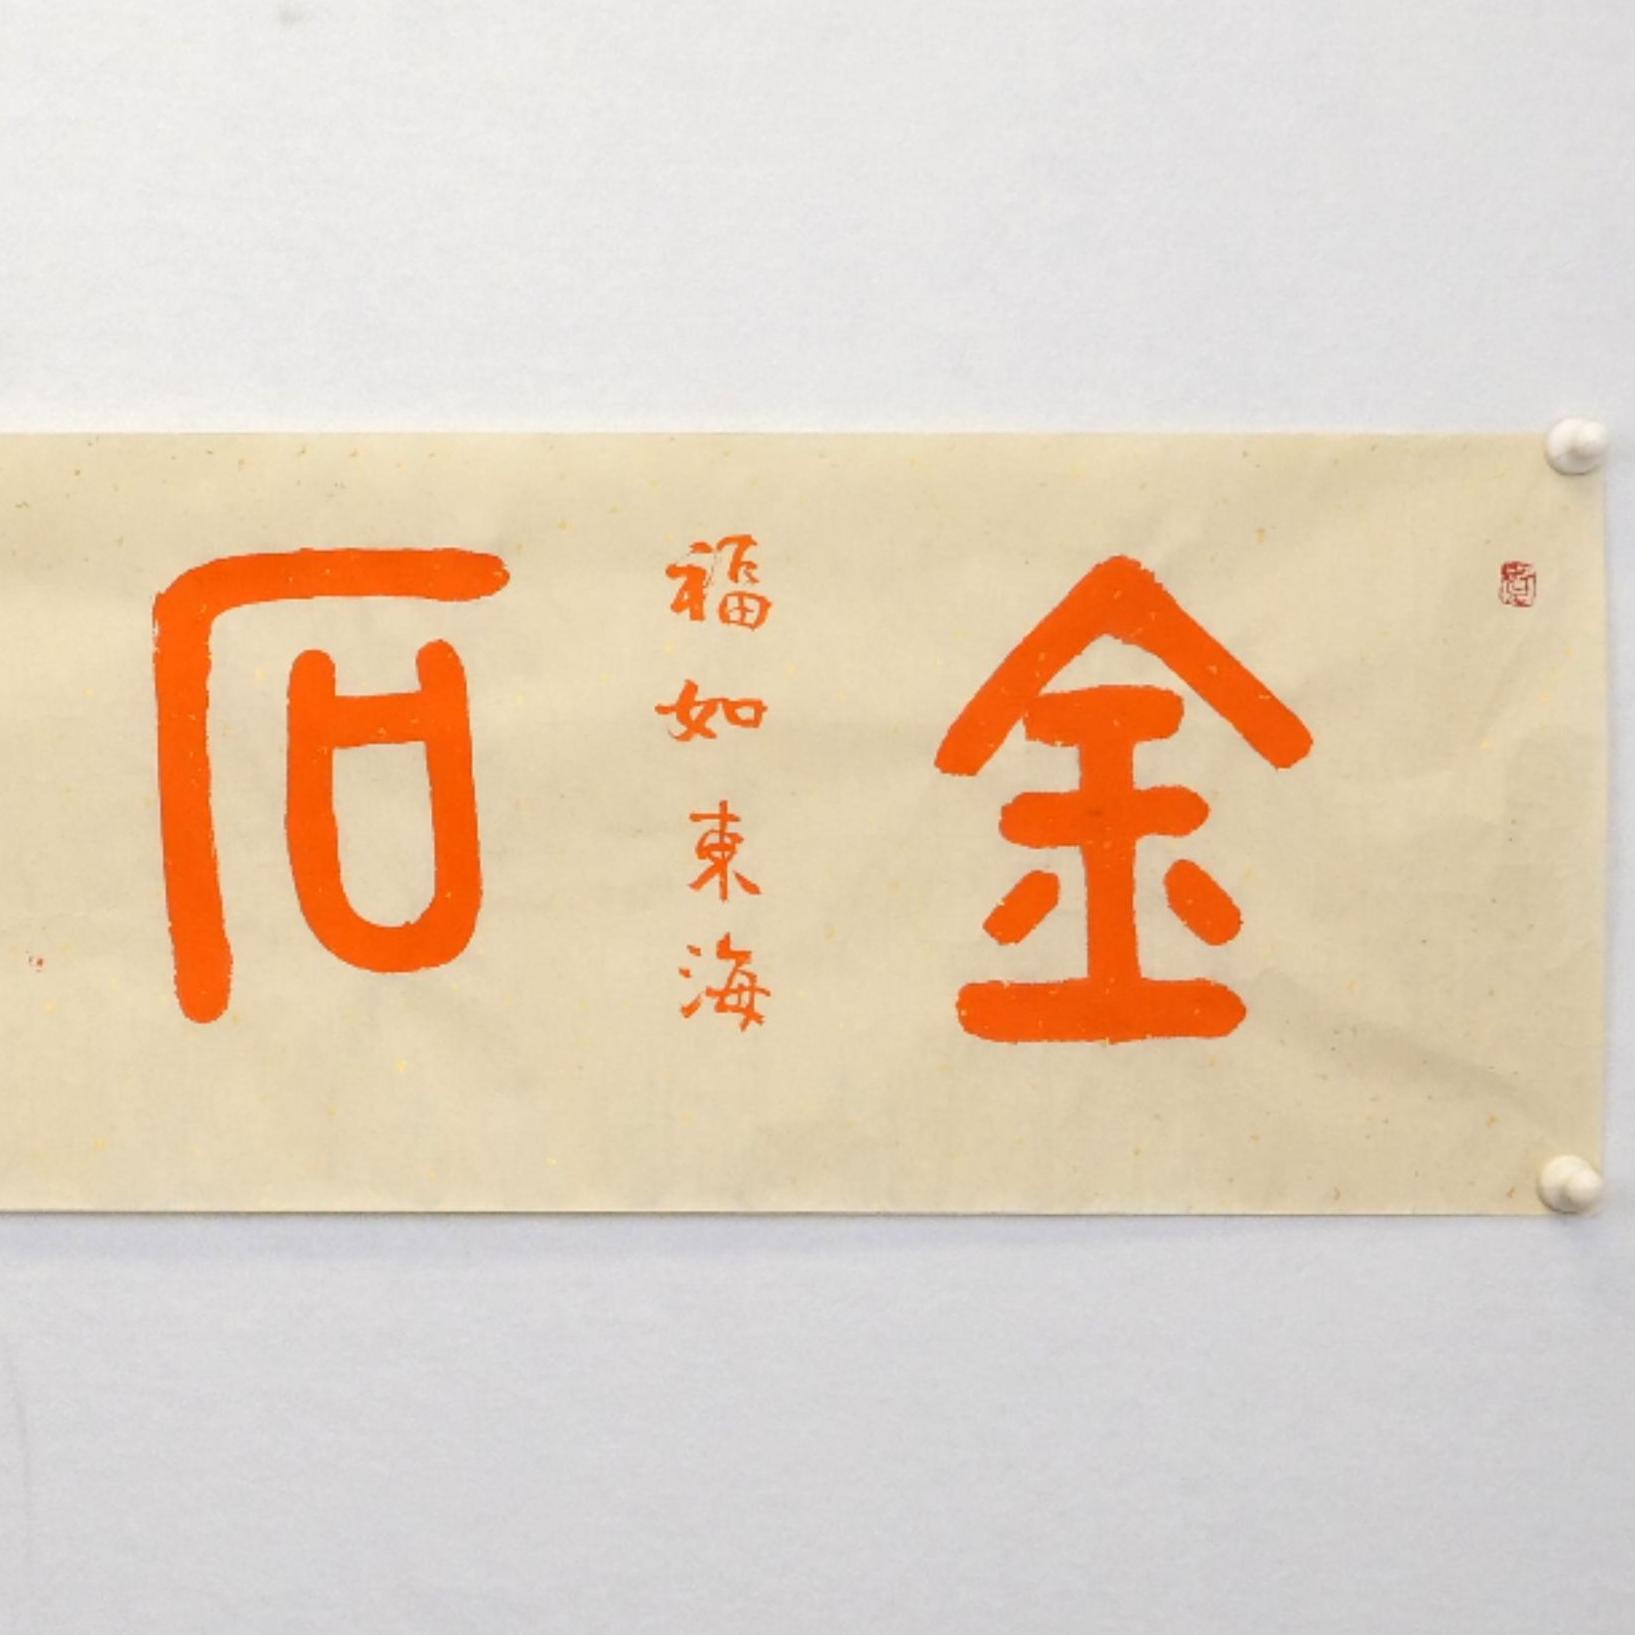 金
福如東海
石